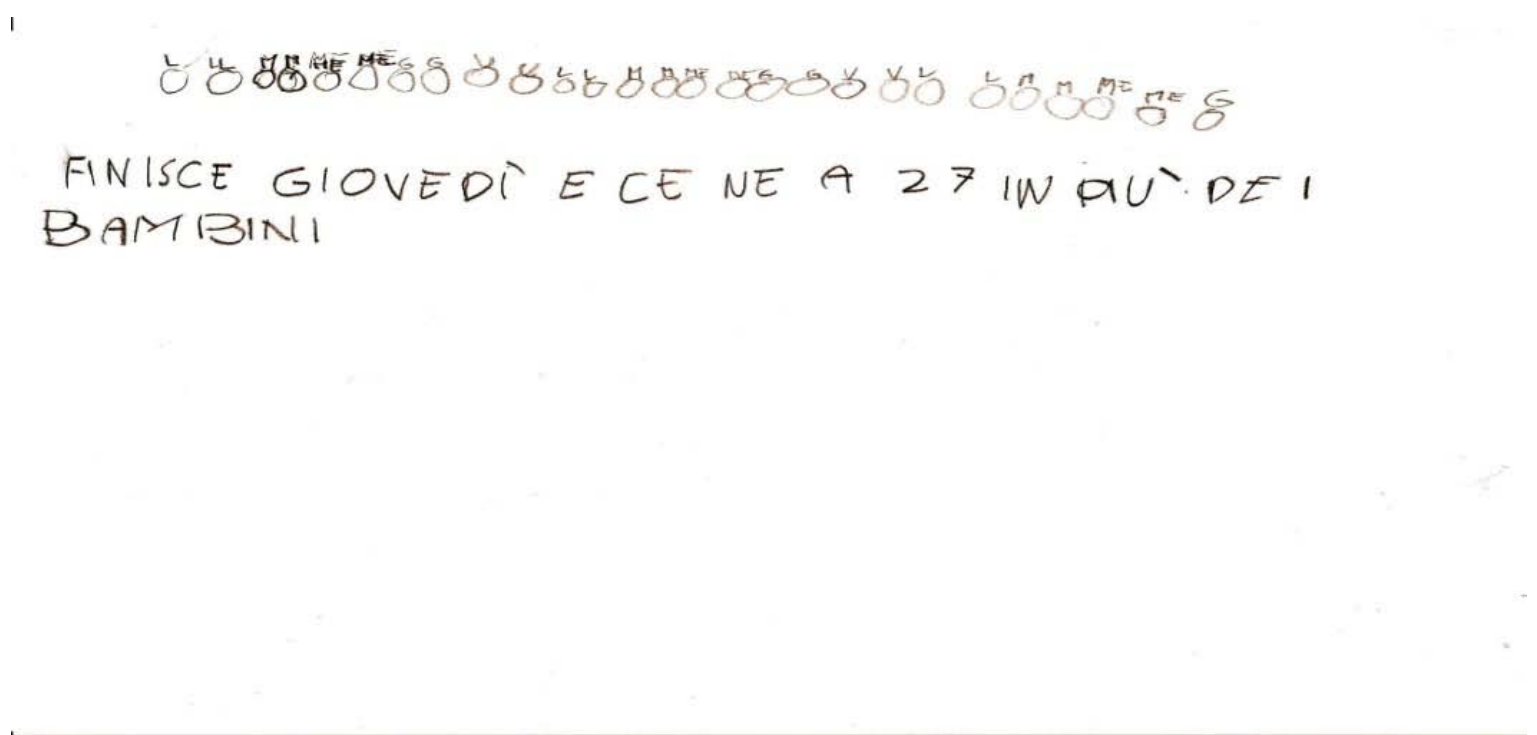 L L M M ME ME G G V V L L M M ME ME G G V V L L M M ME ME G
FINISCE GIOVEDÌ E CE NE A 27 IN PIÙ DEI
BAMBINI